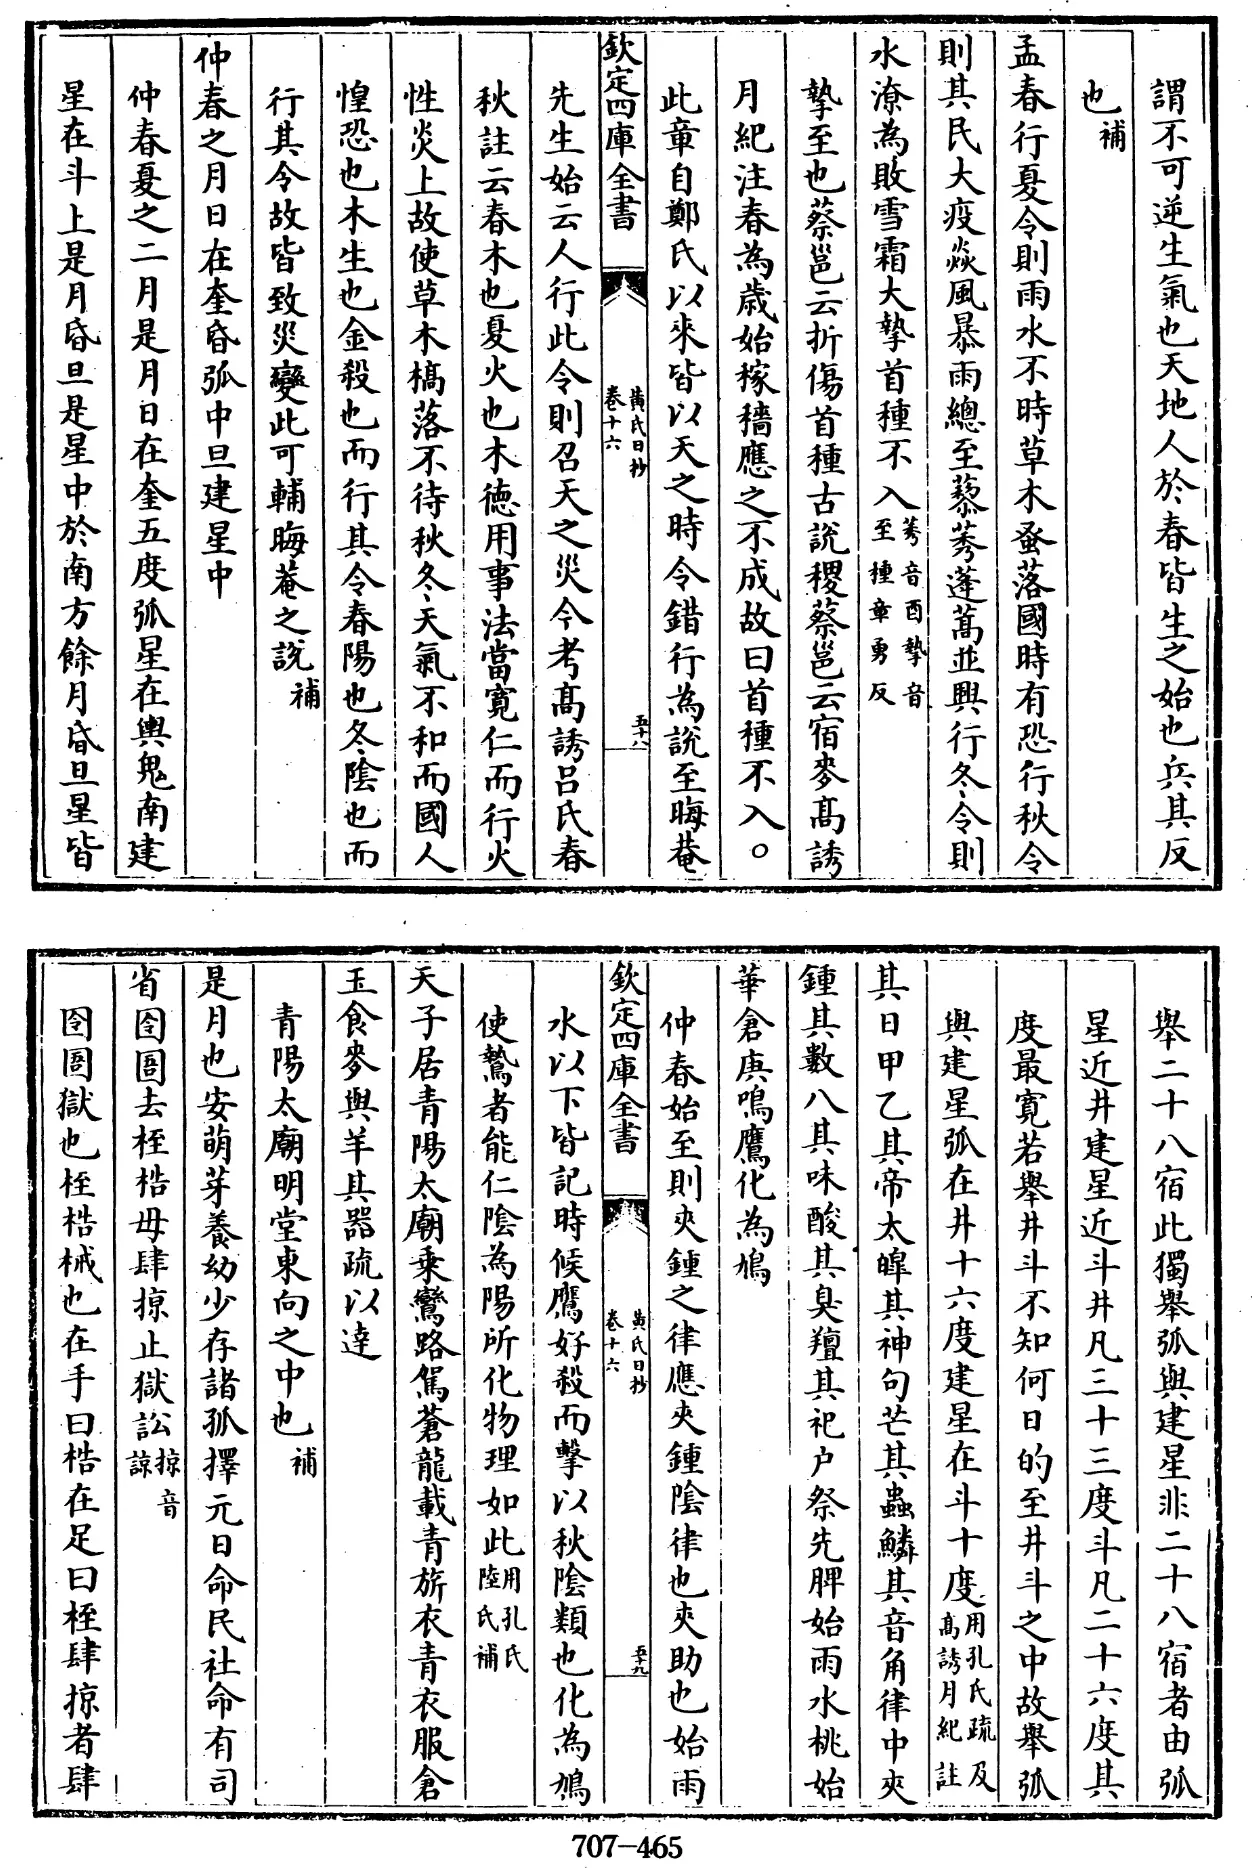 謂不可逆生氣也天地人於春皆生之始也兵其反
也補
孟春行夏令則雨水不時草木蚤落國時有恐行秋令
則其民大疫焱風暴雨總至藜莠蓬蒿並興行冬令則
水潦為敗雪霜大摯首種不入莠音酉摯音至種章勇反
摯至也蔡邕云折傷首種古說稷蔡邕云宿麥髙誘
月紀注春為歲始稼穡應之不成故曰首種不入○
此章自鄭氏以來皆以天之時令錯行為說至晦菴
欽定四庫全書
黃氏日抄
卷十六
五十八
先生始云人行此令則召天之災今考髙誘吕氏春
秋註云春木也夏火也木德用事法當寛仁而行火
性炎上故使草木槁落不待秋冬天氣不和而國人
惶恐也木生也金殺也而行其令春陽也冬陰也而
行其令故皆致災變此可輔晦菴之說補
仲春之月日在奎昏弧中旦建星中
仲春夏之二月是月日在奎五度弧星在輿鬼南建
星在斗上是月昏旦是星中於南方餘月昏旦星皆
舉二十八宿此獨舉弧與建星非二十八宿者由弧
星近井建星近斗井凡三十三度斗凡二十六度其
度最寛若舉井斗不知何日的至井斗之中故舉弧
與建星弧在井十六度建星在斗十度用孔氏疏及髙誘月紀註
其日甲乙其帝太皥其神句芒其蟲鱗其音角律中夾
鍾其數八其味酸其臭羶其祀户祭先脾始雨水桃始
華倉庚鳴鷹化為鳩
仲春始至則夾鍾之律應夾鍾陰律也夾助也始雨
欽定四庫全書
黃氏日抄
卷十六
五十九
水以下皆記時候鷹好殺而擊以秋陰類也化為鳩
使鷙者能仁陰為陽所化物理如此用孔氏陸氏補
天子居青陽太廟乗鸞路駕蒼龍載青旂衣青衣服倉
玉食麥與羊其器疏以達
青陽太廟明堂東向之中也補
是月也安萌芽養幼少存諸孤擇元日命民社命有司
省囹圄去桎梏毋肆掠止獄訟掠音諒
囹圄獄也桎梏械也在手曰梏在足曰桎肆掠者肆
707-465